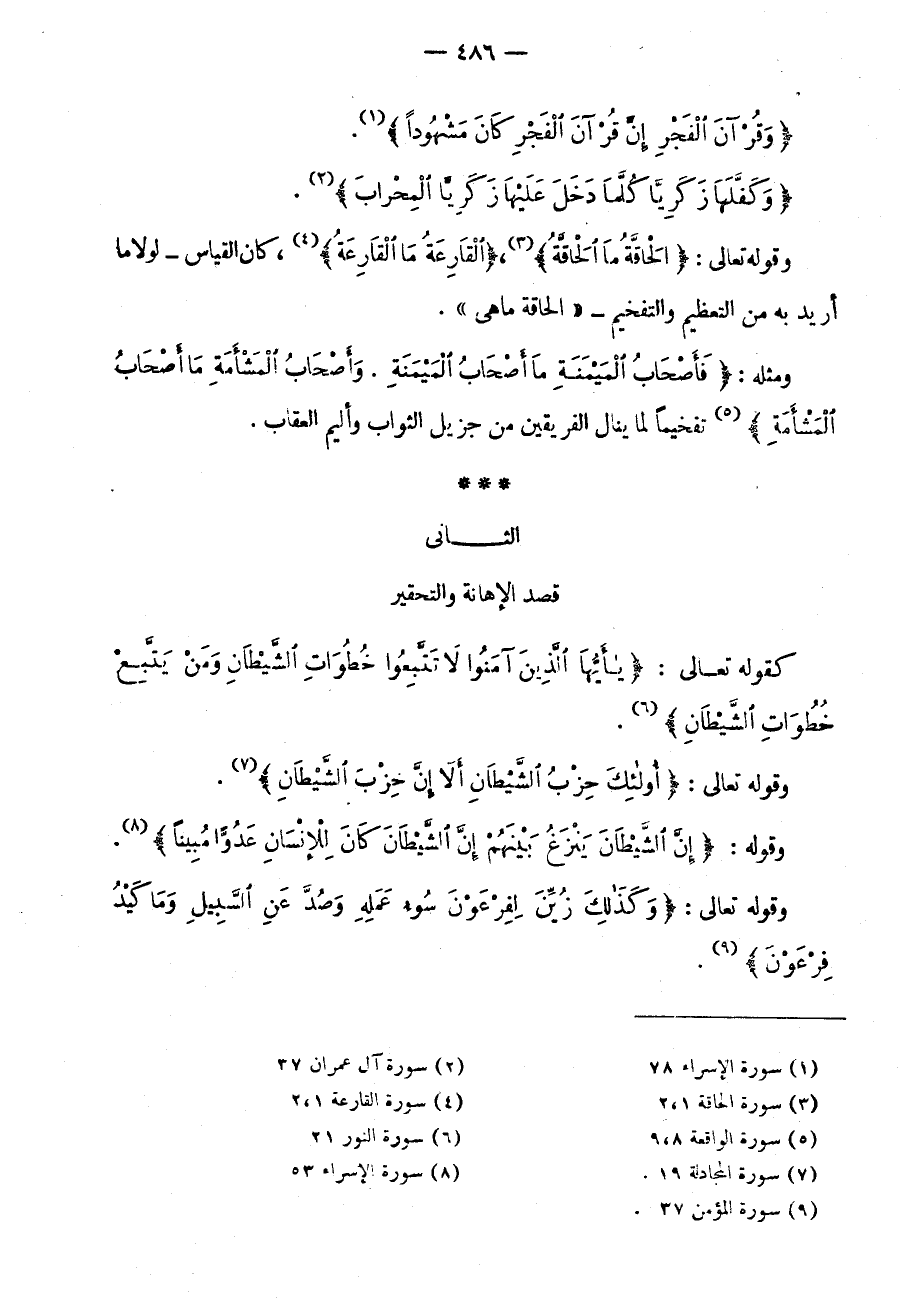 — ٤٨٦ —
﴿ وَقُرْآنَ ٱلْفَجْرِ إِنَّ قُرْآنَ ٱلْفَجْرِ كَانَ مَشْهُوداً ﴾(١).
﴿ وَكَفَّلَهَا زَكَرِيَّا كُلَّمَا دَخَلَ عَلَيْهَا زَكَرِيَّا ٱلْمِحْرابَ ﴾(٢) .
وقوله تعالى : ﴿ الحَاقَّةُ مَا ٱلحَاقَّةُ ﴾(٣)، ﴿ٱلْقَارِعَةُ مَا ٱلْقَارِعَةُ ﴾(٤) ، كان القياس – لولا ما
أريد به من التعظيم والتفخيم – « الحاقة ماهى » .
ومثله : ﴿ فَأَصْحَابُ ٱلْمَيْمَنَةِ مَا أَصْحَابُ ٱلْمَيْمَنَةِ . وَأَصْحَابُ ٱلْمَشْأَمَةِ مَا أَصْحَابُ
ٱلْمَشْأَمَةِ ﴾ (٥) تفخيماً لما ينال الفريقين من جزيل الثواب وأليم العقاب .
* * *
الثـــــانى
قصد الإهانة والتحقير
كقوله تعـالى : ﴿ يٰأَيُّهَا ٱلَّذِينَ آمَنُوا لَا تَتَّبِعُوا خُطُوَاتِ ٱلشَّيْطَانِ وَمَنْ يَتَّبِعْ
خُطُوَاتِ ٱلشَّيْطَانِ ﴾ (٦) .
وقوله تعالى : ﴿ أُولٰئِكَ حِزْبُ ٱلشَّيْطَانِ أَلَا إِنَّ حِزْبَ ٱلشَّيْطَانِ ﴾(٧) .
وقوله : ﴿ إِنَّ ٱلشَّيْطَانَ يَنْزَغُ بَيْنَهُمْ إِنَّ ٱلشَّيْطَانَ كَانَ لِلْإِنْسَانِ عَدُوًّا مُبِيناً ﴾(٨).
وقوله تعالى : ﴿ وَكَذٰلِكَ زُيِّنَ لِفِرْعَوْنَ سُوء عَمَلِهِ وَصُدَّ عَنِ ٱلسَّبِيلِ وَمَا كَيْدُ
فِرْعَوْنَ ﴾ (٩) .
(١) سورة الإسراء ٧٨ (٢) سورة آل عمران ٣٧
(٣) سورة الحاقة ٢،١ (٤) سورة القارعة ٢،١
(٥) سورة الواقعة ٩،٨ (٦) سورة النور ٢١
(٧) سورة المجادلة ١٩ . (٨) سورة الإسراء ٥٣
(٩) سورة المؤمن ٣٧ .